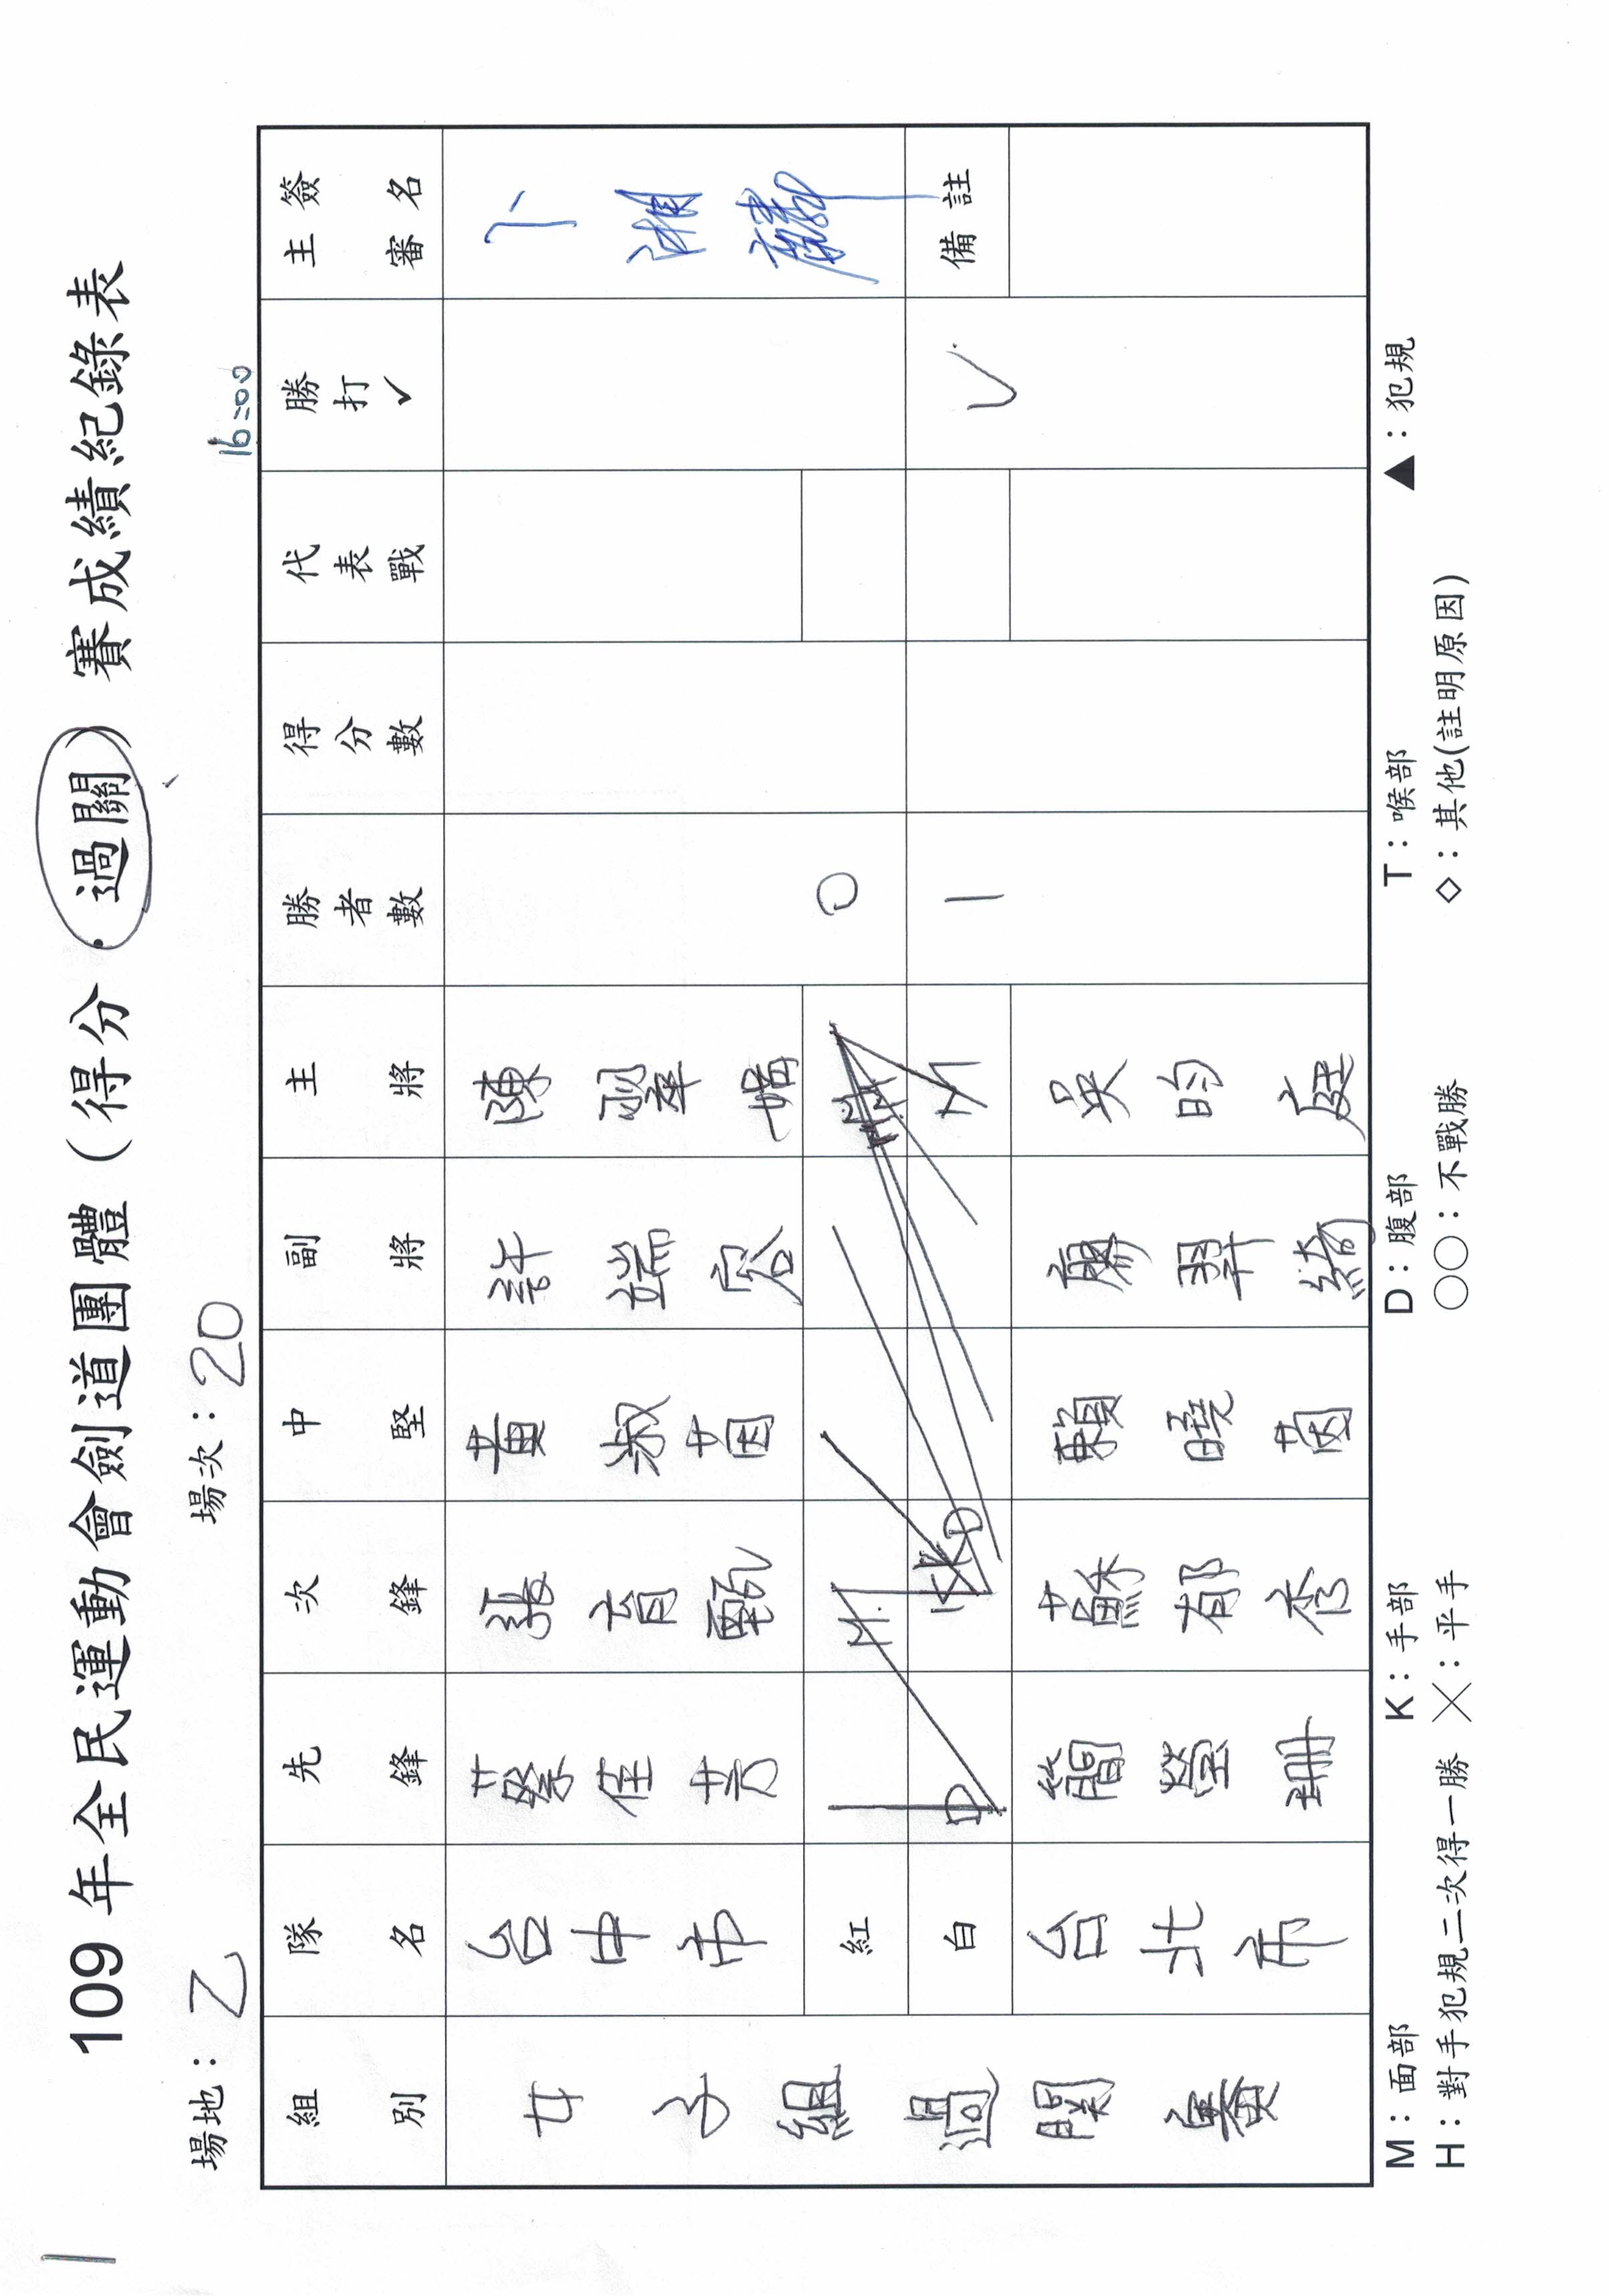 109 年全民運動會劍道團體（得分．過關）賽成績紀錄表
場地：乙 場次：20 16:00
組別 隊名 先鋒 次鋒 中堅 副將 主將 勝者數 得分數 代表戰 勝打✓ 主審簽名
女子組過關賽
台中市 蔡佳芳 張育甄 黃淑茵 許端容 陳翠娟
紅 M 0
白 D KD M 1 ✓ 備註
台北市 簡瑩珊 蘇郁秀 賴曉茵 廖羿綺 吳昀庭
M：面部 K：手部 D：腹部 T：喉部 ▲：犯規
H：對手犯規二次得一勝 ╳：平手 ○○：不戰勝 ◇：其他(註明原因)